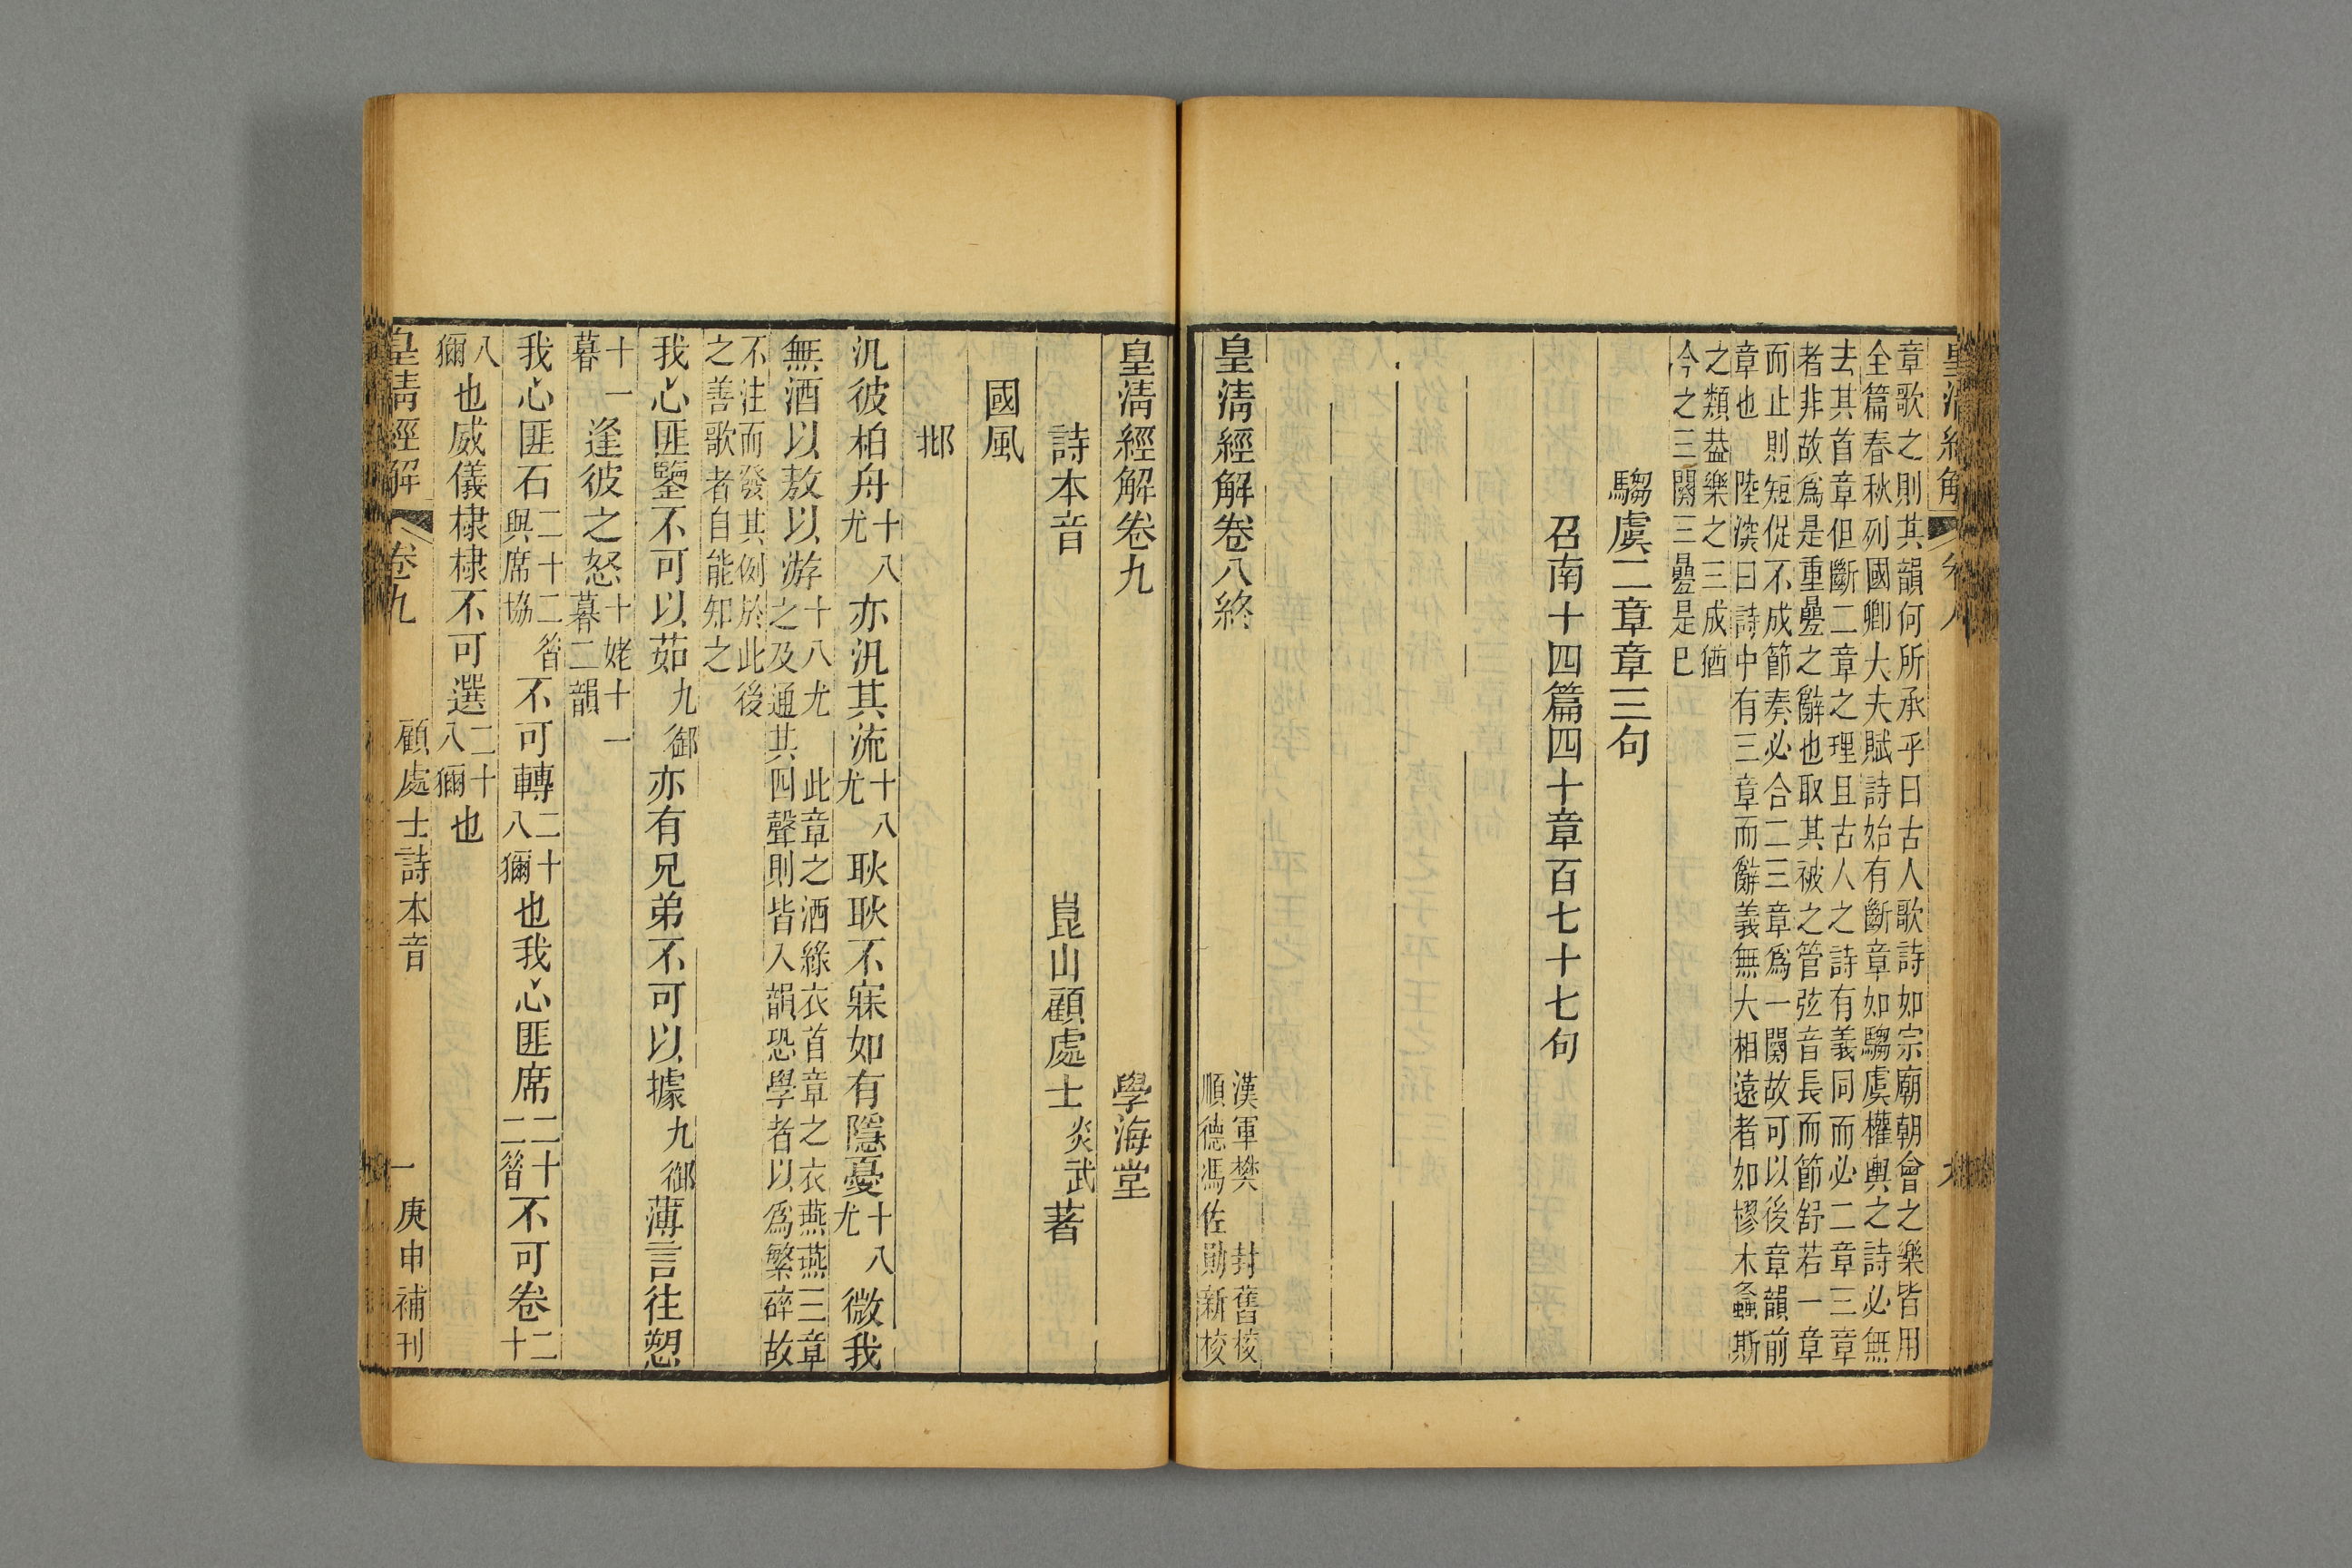 皇清經解 卷八
章歌之則其韻何所承乎曰古人歌詩如宗廟朝會之樂皆用
全篇春秋列國卿大夫賦詩始有斷章如騶虞權輿之詩必無
去其首章但斷二章之理且古人之詩有義同而必二章三章
者非故爲是重疊之辭也取其被之管弦音長而節舒若一章
而止則短促不成節奏必合二三章爲一闋故可以後章韻前
章也 陸淡曰詩中有三章而辭義無大相遠者如樛木螽斯
之類葢樂之三成猶
今之三闋三疊是已
騶虞二章章三句
召南十四篇四十章百七十七句
皇清經解卷八終 漢軍樊 封舊校 順德馮佐勛新校
皇清經解卷九 學海堂
詩本音 崑山顧處士炎武著
國風
邶
汎彼柏舟十八尤亦汎其流十八尤耿耿不寐如有隱憂十八尤微我
無酒以敖以游十八尤 此章之酒綠衣首章之衣燕燕三章之及通其四聲則皆入韻恐學者以爲繁碎故
不注而發其例於此後之善歌者自能知之
我心匪鑒不可以茹九御亦有兄弟不可以據九御薄言往愬
十一暮逢彼之怒十姥十一暮二韻
我心匪石二十二㫺與席協不可轉二十八獮也我心匪席二十二㫺不可卷二十
八獮也威儀棣棣不可選二十八獮也
皇清經解 卷九 顧處士詩本音 一 庚申補刊